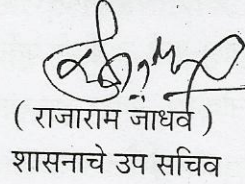 ( राजाराम जाधव )
शासनाचे उप सचिव